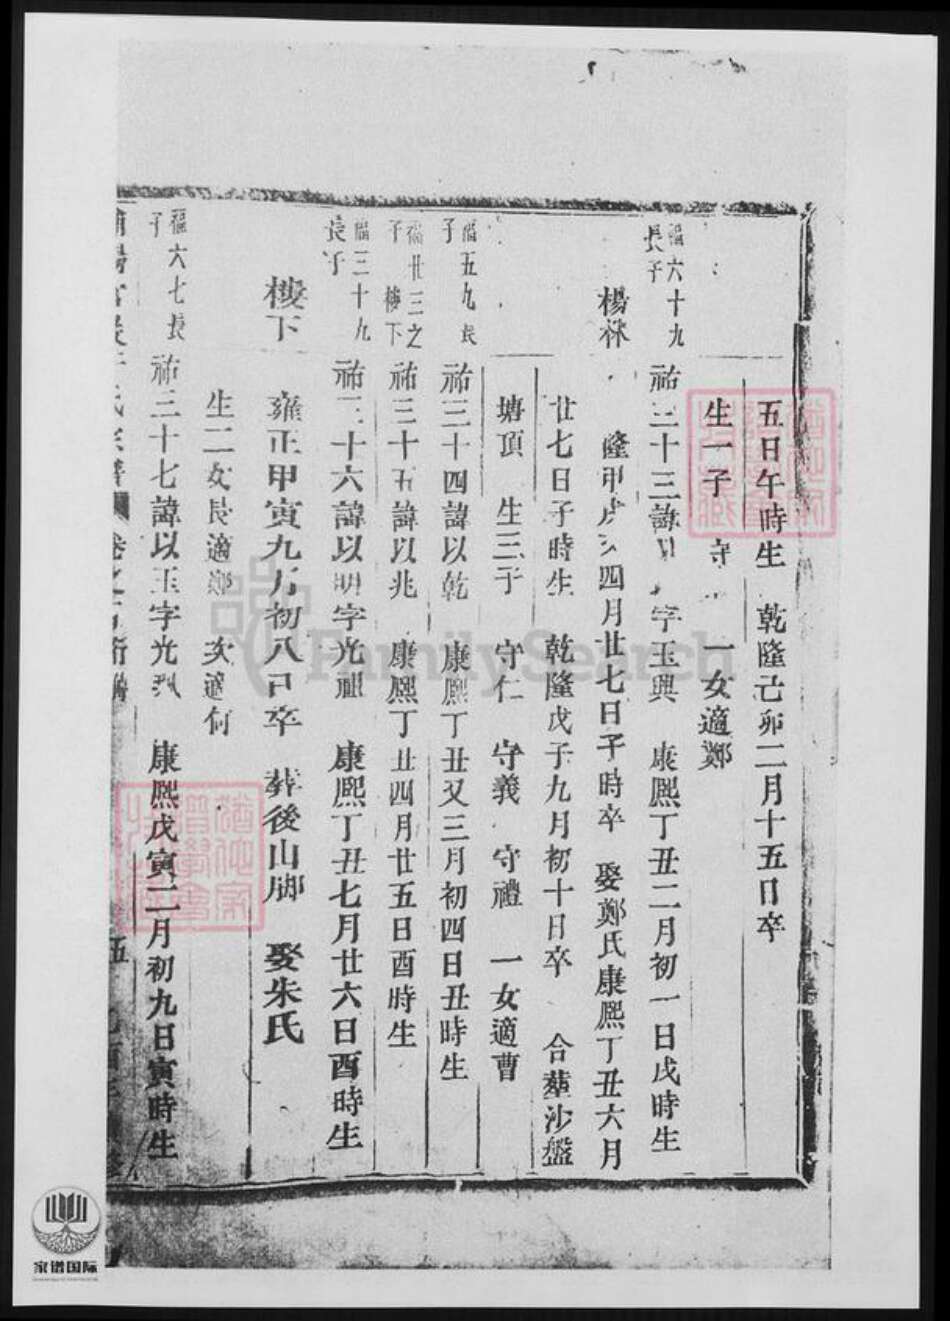 五日午時生 乾隆己卯二月十五日卒
生一子 守 一女適鄭
福六十九長子 祐三十三諱以 字玉興 康熙丁丑二月初一日戌時生
楊林 隆甲戌 四月廿七日子時卒 娶鄭氏康熙丁丑六月
廿七日子時生 乾隆戊子九月初十日卒 合葬沙盤
塘頂 生三子 守仁 守義 守禮 一女適曹
福五九長子 祐三十四諱以乾 康熙丁丑又三月初四日丑時生
福廿三之子樓下 祐三十五諱以兆 康熙丁丑四月廿五日酉時生
福三十九長子 祐三十六諱以明字光 康熙丁丑七月廿六日酉時生
樓下 雍正甲寅九月初八日卒 葬後山脚 娶朱氏
生二女長適鄭 次適何
福六七長子 祐三十七諱以玉字光 康熙戊寅二月初九日寅時生
氏宗譜 卷之
FamilySearch
家谱国际